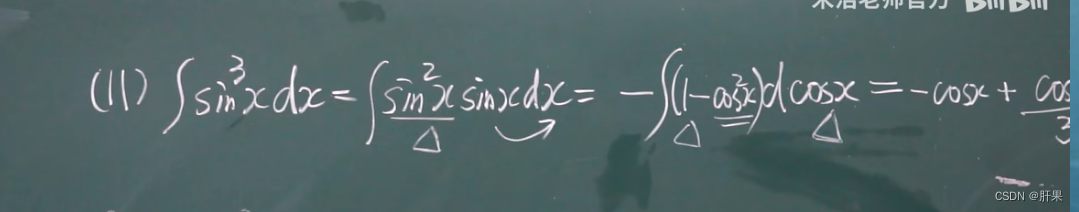 朱浩老师官方 bilibili
(11) ∫sin³x dx = ∫sin²x sinx dx = -∫(1-cos²x)dcosx = -cosx + cos/3
CSDN @肝果